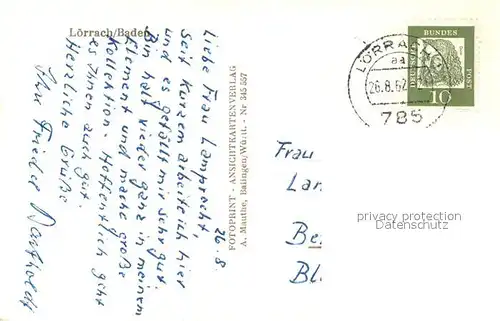 Lörrach/Baden
26.8
Liebe Frau Lamprecht,
seit kurzem arbeite ich hier
und es gefällt mir sehr gut.
Bin halt wieder ganz in meinem
Element und mache große
Kollektion. Hoffentlich geht
es Ihnen auch gut.
Herzliche Grüße
Ihr Frieder Bartholdt
FOTOPRINT - ANSICHTKARTENVERLAG
A. Mauthe, Balingen/Württ. - Nr 345 557
LÖRRACH
aa
26.8.62
785
DEUTSCHE
BUNDES
POST
10
Frau
Lam
Be.
Bl.
privacy protection
Datenschutz